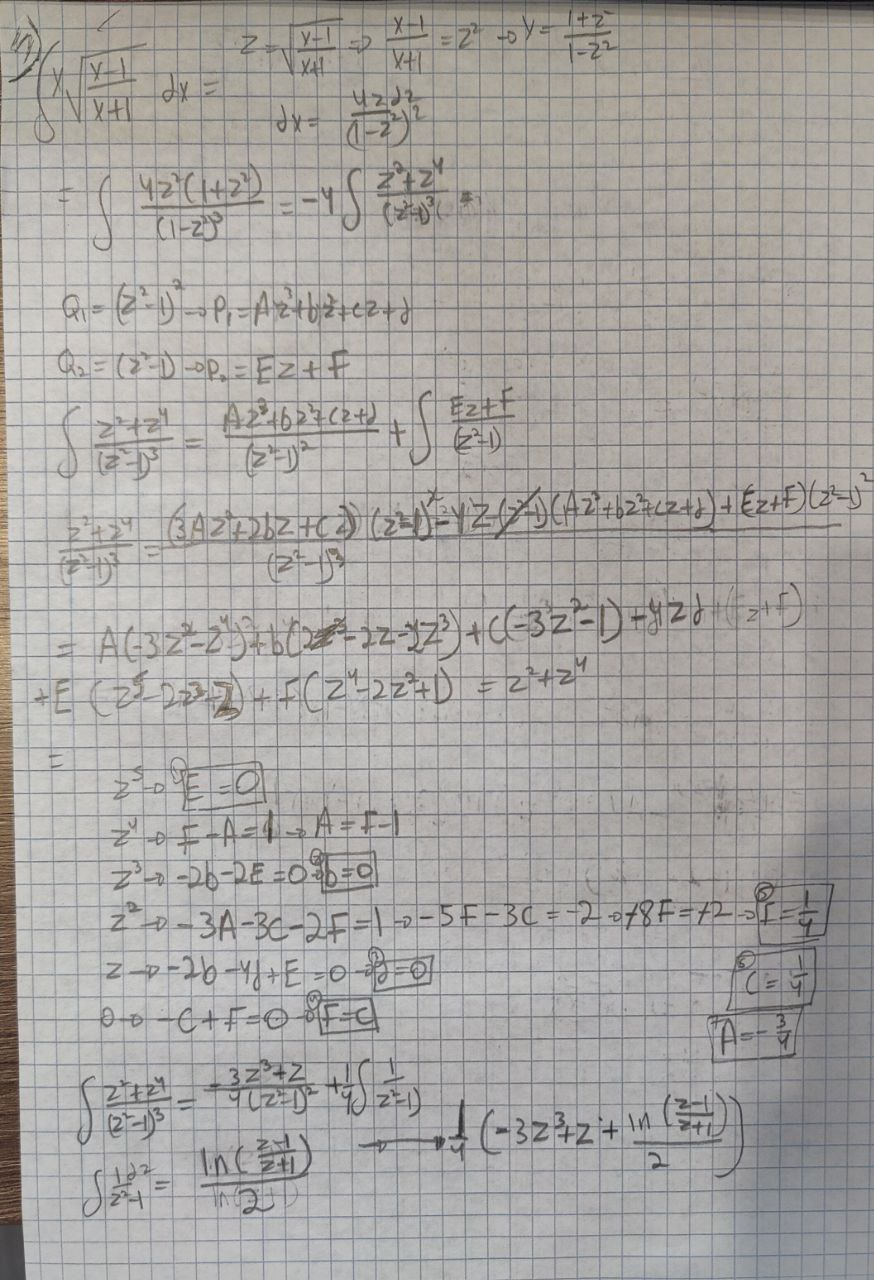 ∫ x√((x-1)/(x+1)) dx = z = √((x-1)/(x+1)) ⇒ (x-1)/(x+1) = z² → x = (1+z²)/(1-z²)
dx = 4z dz/(1-z²)²
= ∫ 4z²(1+z²)/(1-z²)³ = -4 ∫ (z²+z⁴)/(z²-1)³ =
Q₁ = (z²-1)² → P₁ = Az³+bz²+cz+d
Q₂ = (z²-1) → P₂ = Ez + F
∫ (z²+z⁴)/(z²-1)³ = (Az³+bz²+cz+d)/(z²-1)² + ∫ (Ez+F)/(z²-1)
(z²+z⁴)/(z²-1)³ = ((3Az²+2bz+c) (z²-1) - 4z (Az³+bz²+cz+d) + (Ez+F)(z²-1)²)/(z²-1)³
= A(-3z²-z⁴) + b( -2z-2z³) + C(-3z²-1) - 4zd
+E (z⁵-2z³+z) + F(z⁴-2z²+1) = z²+z⁴
=
z⁵ → E = 0
z⁴ → F - A = 1 → A = F-1
z³ → -2b-2E = 0 → b = 0
z² → -3A-3C-2F = 1 → -5F-3C = -2 → +8F = +2 → F = 1/4
z → -2b-4d+E = 0 → d = 0
C = 1/4
0 → -C+F = 0 → F = C
A = -3/4
∫ (z²+z⁴)/(z²-1)³ = (-3z³+z)/(4(z²-1)²) + 1/4 ∫ 1/(z²-1)
∫ 1dz/(z²-1) = ln((z-1)/(z+1))/2 → 1/4 (-3z³+z + ln((z-1)/(z+1))/2)